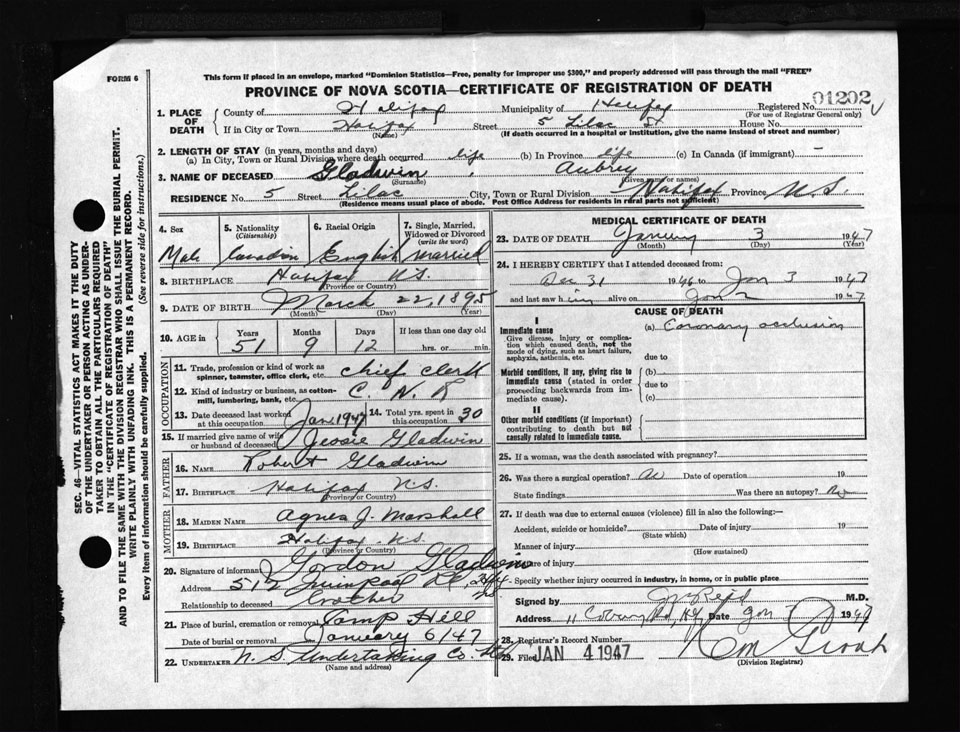 FORM 6
This form if placed in an envelope, marked "Dominion Statistics—Free, penalty for improper use $300," and properly addressed will pass through the mail "FREE"
PROVINCE OF NOVA SCOTIA—CERTIFICATE OF REGISTRATION OF DEATH
01202
1. PLACE OF DEATH
County of Halifax Municipality of Halifax Registered No.
(For use of Registrar General only)
If in City or Town Halifax Street 5 Lilac St House No.
(Name) (If death occurred in a hospital or institution, give the name instead of street and number)
2. LENGTH OF STAY (in years, months and days)
(a) In City, Town or Rural Division where death occurred life (b) In Province life (c) In Canada (if immigrant) —
3. NAME OF DECEASED Gladwin, Aubrey
(Surname) (Given name or names)
RESIDENCE No. 5 Street Lilac City, Town or Rural Division Halifax Province N.S.
(Residence means usual place of abode. Post Office Address for residents in rural parts not sufficient)
4. Sex 5. Nationality (Citizenship) 6. Racial Origin 7. Single, Married, Widowed or Divorced (write the word)
Male Canadian English Married
8. BIRTHPLACE Halifax N.S.
(Province or Country)
9. DATE OF BIRTH March 22, 1895
(Month) (Day) (Year)
10. AGE in Years Months Days If less than one day old
51 9 12 hrs. or min.
OCCUPATION
11. Trade, profession or kind of work as spinner, teamster, office clerk, etc. Chief Clerk
12. Kind of industry or business, as cotton-mill, lumbering, bank, etc. C. N. R
13. Date deceased last worked at this occupation Jan. 1947 14. Total yrs. spent in this occupation 30
15. If married give name of wife or husband of deceased Jessie Gladwin
FATHER
16. NAME Robert Gladwin
17. BIRTHPLACE Halifax N.S.
(Province or Country)
MOTHER
18. MAIDEN NAME Agnes J. Marshall
19. BIRTHPLACE Halifax N.S.
(Province or Country)
20. Signature of informant J Gordon Gladwin
Address 512 Quinpool Rd, Hfx NS
Relationship to deceased Brother
21. Place of burial, cremation or removal Camp Hill
Date of burial or removal January 6/47
22. UNDERTAKER N. S. Undertaking Co. Ltd
(Name and address)
MEDICAL CERTIFICATE OF DEATH
23. DATE OF DEATH January 3 1947
(Month) (Day) (Year)
24. I HEREBY CERTIFY that I attended deceased from
Dec 31 1946 to Jan 3 1947
and last saw him alive on Jan 2 1947
CAUSE OF DEATH
I
Immediate cause (a) Coronary occlusion
Give disease, injury or complication which caused death, not the mode of dying, such as heart failure, asphyxia, asthenia, etc.
due to
Morbid conditions, if any, giving rise to immediate cause (stated in order proceeding backwards from immediate cause).
(b)
due to
(c)
II
Other morbid conditions (if important) contributing to death but not causally related to immediate cause.
25. If a woman, was the death associated with pregnancy?
26. Was there a surgical operation? No Date of operation 19
State findings Was there an autopsy? No
27. If death was due to external causes (violence) fill in also the following:—
Accident, suicide or homicide? Date of injury 19
(State which)
Manner of injury
(How sustained)
Nature of injury
Specify whether injury occurred in industry, in home, or in public place
Signed by Reid M.D.
Address 11 Coburg Rd, Hfx Date Jan 3 1947
28. Registrar's Record Number
29. Filed JAN 4 1947
(Division Registrar)
SEC. 46—VITAL STATISTICS ACT MAKES IT THE DUTY
OF THE UNDERTAKER OR PERSON ACTING AS UNDER-
TAKER TO OBTAIN ALL THE PARTICULARS REQUIRED
IN THE "CERTIFICATE OF REGISTRATION OF DEATH"
AND TO FILE THE SAME WITH THE DIVISION REGISTRAR WHO SHALL ISSUE THE BURIAL PERMIT.
WRITE PLAINLY WITH UNFADING INK. THIS IS A PERMANENT RECORD.
Every item of information should be carefully supplied. (See reverse side for instructions.)